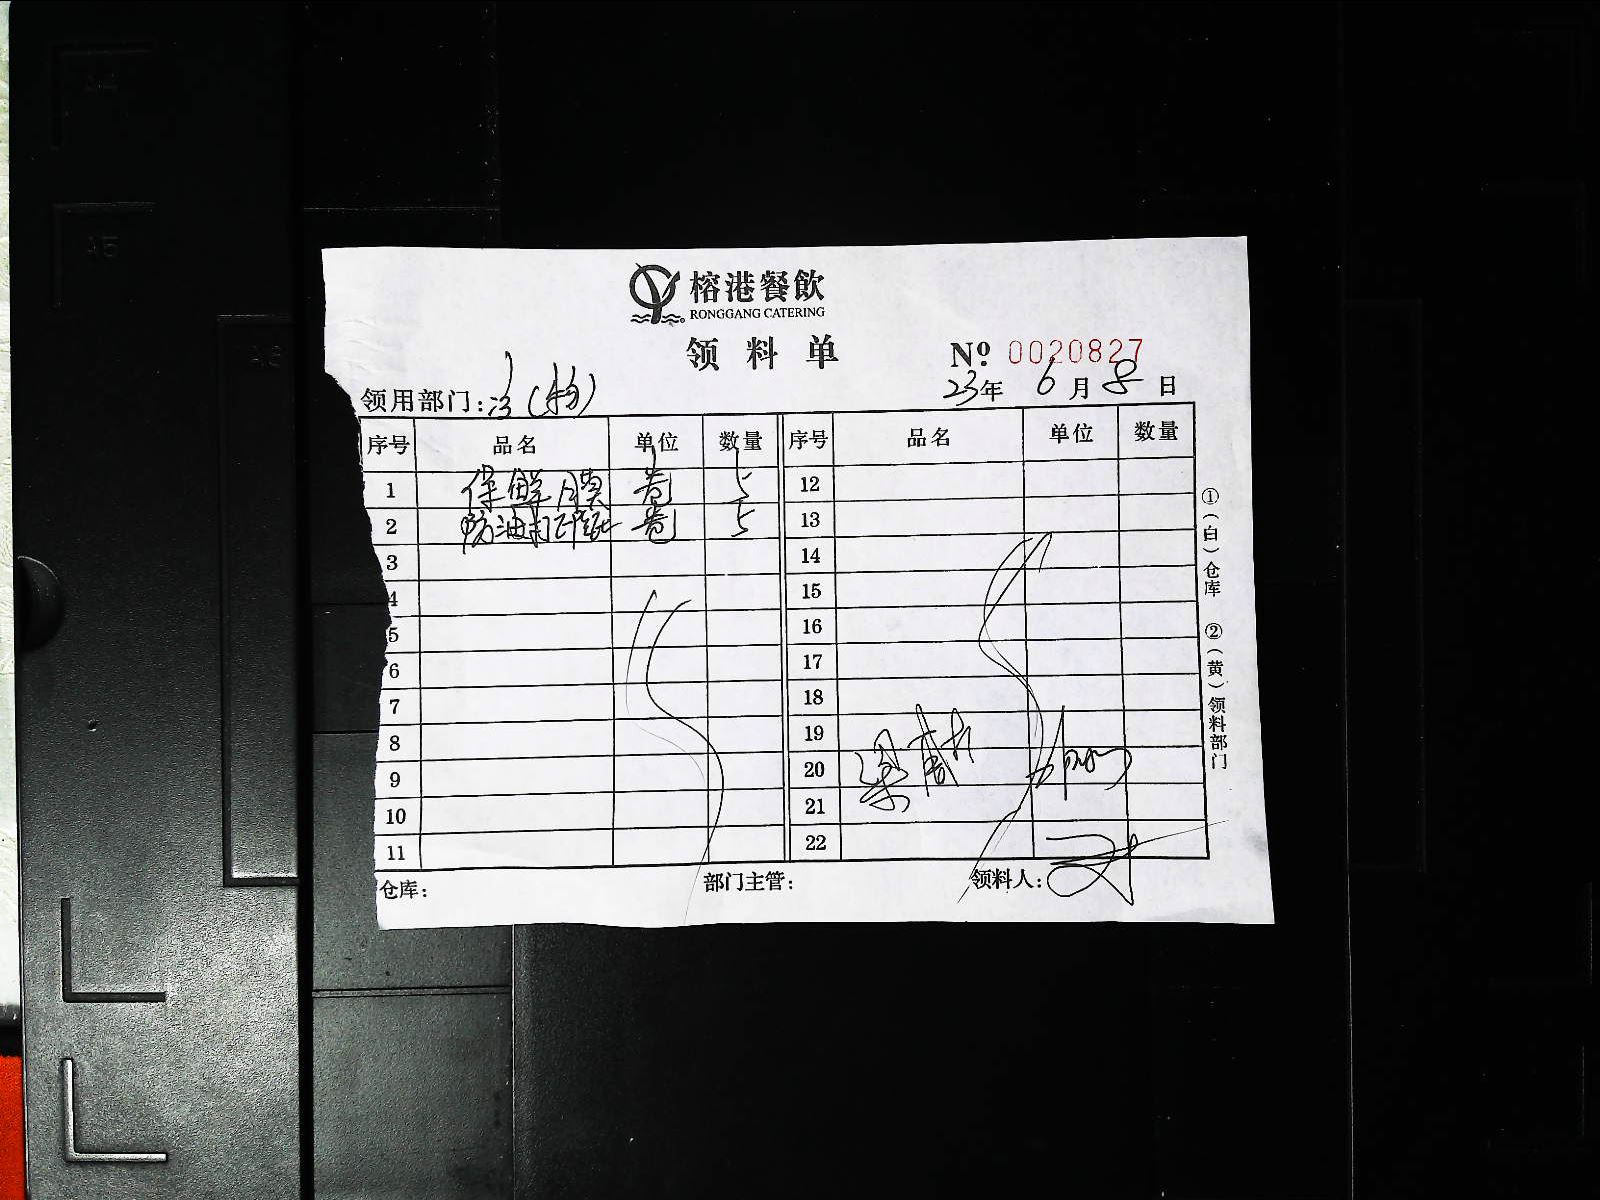 榕港餐飲
RONGGANG CATERING
领料单
Nº 0020827
领用部门: (物)
23年 6月 8日
序号 品名 单位 数量 序号 品名 单位 数量
1 保鲜膜 卷 5 12
2 防油打印纸 卷 5 13
3 14
4 15
5 16
6 17
7 18
8 19
9 20
10 21
11 22
仓库: 部门主管: 领料人:
①(白)仓库 ②(黄)领料部门
45